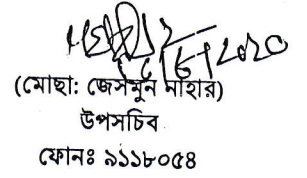 (মোছা: জেসমুন নাহার)
উপসচিব
ফোনঃ ৯১১৮০৫৪